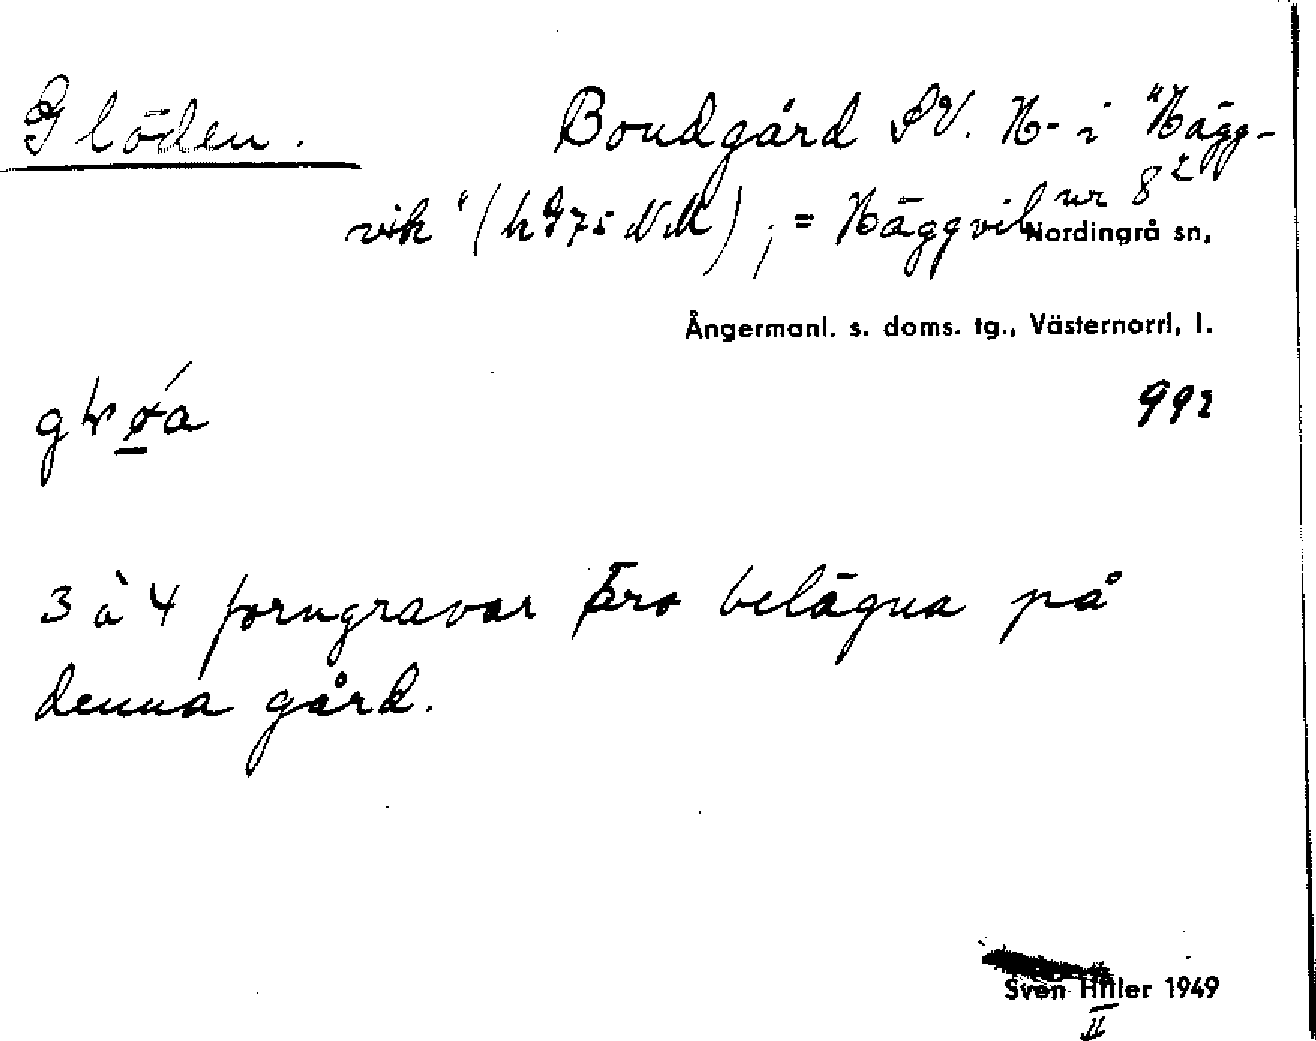 Glöden. Bondgård SV. N- i "Häggvik" (hG75 NM); = Häggvik nr 8²
Nordingrå sn,
Ångermanl. s. doms. tg., Västernorrl. l.
992
3 à 4 forngravar äro belägna på
denna gård.
Sven Hitler 1949
II